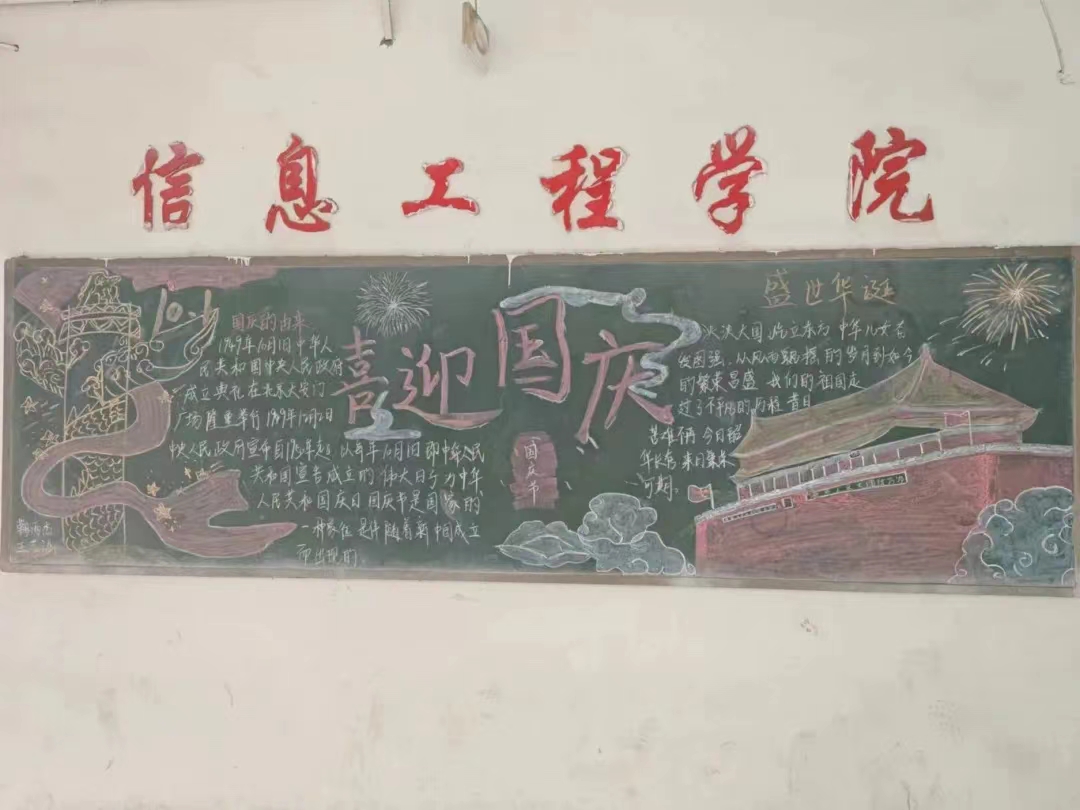 信息工程学院
10.1
国庆的由来
1949年10月1日中华人
民共和国中央人民政府
成立典礼在北京天安门
广场隆重举行1949年12月2日
中央人民政府宣布自1950年起 以每年10月1日即中华人民
共和国宣告成立的伟大日子为中华
人民共和国国庆日国庆节是国家的
一种象征 是伴随着新中国成立
而出现的。
喜迎国庆
国庆节
盛世华诞
泱泱大国 屹立东方 中华儿女 奋
发图强 从风雨飘摇的岁月到如今
的繁荣昌盛 我们的祖国走
过了不平凡的历程 昔日
苦难不再 今日韶
华 来日
可期。